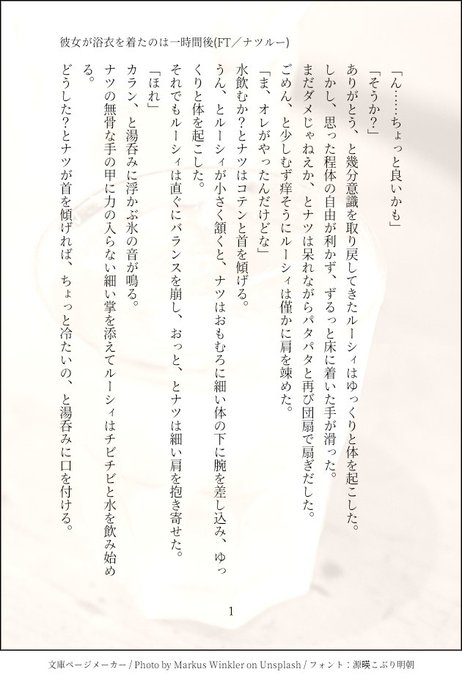 彼女が浴衣を着たのは一時間後(FT／ナツルー)
「ん……ちょっと良いかも」
「そうか？」
ありがとう、と幾分意識を取り戻してきたルーシィはゆっくりと体を起こした。
しかし、思った程体の自由が利かず、ずるっと床に着いた手が滑った。
まだダメじゃねえか、とナツは呆れながらパタパタと再び団扇で扇ぎだした。
ごめん、と少しむず痒そうにルーシィは僅かに肩を竦めた。
「ま、オレがやったんだけどな」
水飲むか？とナツはコテンと首を傾げる。
うん、とルーシィが小さく頷くと、ナツはおもむろに細い体の下に腕を差し込み、ゆっ
くりと体を起こした。
それでもルーシィは直ぐにバランスを崩し、おっと、とナツは細い肩を抱き寄せた。
「ほれ」
カラン、と湯呑みに浮かぶ氷の音が鳴る。
ナツの無骨な手の甲に力の入らない細い掌を添えてルーシィはチビチビと水を飲み始め
る。
どうした？とナツが首を傾げれば、ちょっと冷たいの、と湯呑みに口を付ける。
1
文庫ページメーカー / Photo by Markus Winkler on Unsplash / フォント：源暎こぶり明朝